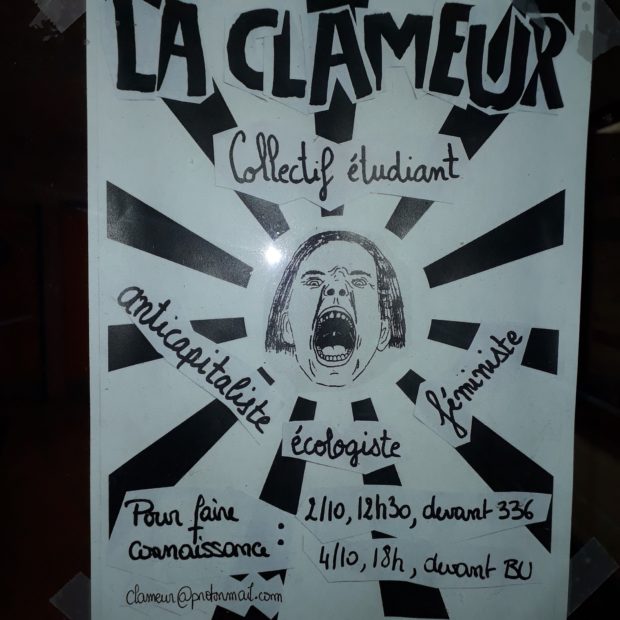 LA CLAMEUR
Collectif étudiant
anticapitaliste
écologiste
féministe
Pour faire
connaissance :
2/10, 12h30, devant 336
4/10, 18h, devant BU
clameur@protonmail.com